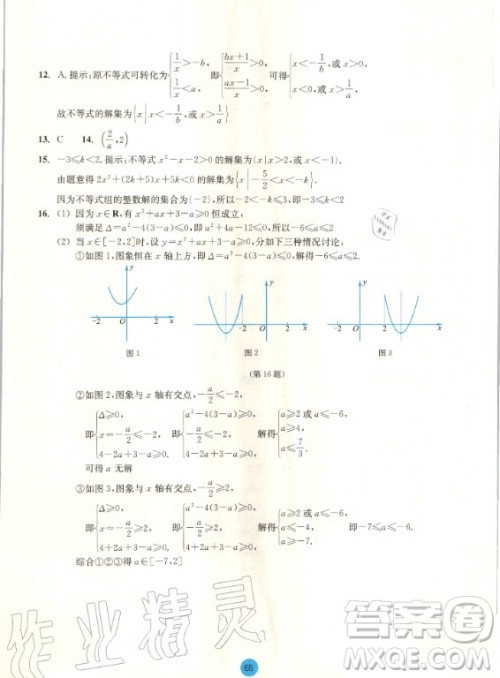 12. A. 提示：原不等式可转化为 {1/x>-b, 1/x<a, 即 {(bx+1)/x>0, (ax-1)/x>0, 可得 {x<-1/b,或x>0, x<0,或x>1/a,
故不等式的解集为{x|x<-1/b,或x>1/a}
13. C 14. (2/a,2)
15. -3≤k<2. 提示：不等式x²-x-2>0的解集为{x|x<-1,或x>2}.
由题意得2x²+(2k+5)x+5k<0的解集为{x|-5/2<x<-k}.
因为不等式组的整数解的集合为{-2}，所以-2<-k≤3，即-3≤k<2.
16. (1) 因为x∈R，有x²+ax+3-a≥0恒成立，
须满足Δ=a²-4(3-a)≤0，即a²+4a-12≤0，所以-6≤a≤2.
(2) 当x∈[-2,2]时，设y=x²+ax+3-a≥0，分如下三种情况讨论：
①如图1，图象恒在x轴上方，有Δ=a²-4(3-a)≤0，解得-6≤a≤2.
y
-2 O 2 x
y
-2 O 2 x
y
-2 O 2 x
图1 图2 图3
(第16题)
②如图2，图象与x轴有交点，-a/2≤-2，
即{Δ≥0, x=-a/2≤-2, 4-2a+3-a≥0, 即{a²-4(3-a)≥0, -a/2≤-2, 4-2a+3-a≥0, 解得{a≥2或a≤-6, a≥4, a≤7/3.
可得a无解
③如图3，图象与x轴有交点，-a/2≥2，
即{Δ≥0, x=-a/2≥2, 4+2a+3-a≥0, 即{a²-4(3-a)≥0, -a/2≥2, 4+2a+3-a≥0, 解得{a≥2或a≤-6, a≤-4, a≥-7. 即-7≤a≤-6.
综合①②③得a∈[-7,2]
作业精灵
65
答案圈
MXQE.COM